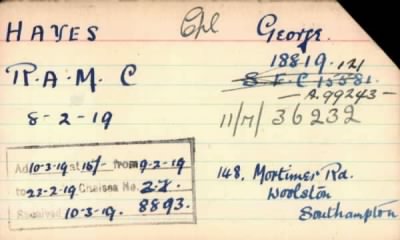 HAYES Cpl George.
18819. 121
R.A.M.C
— A.99243 —
8-2-19 11/M/ 36232
Ad 10-3-19 at 15/- from 9-2-19
to 23-2-19 Chelsea No. Z.Z.
Received 10-3-19. 8893.
148, Mortimer Rd.
Woolston
Southampton